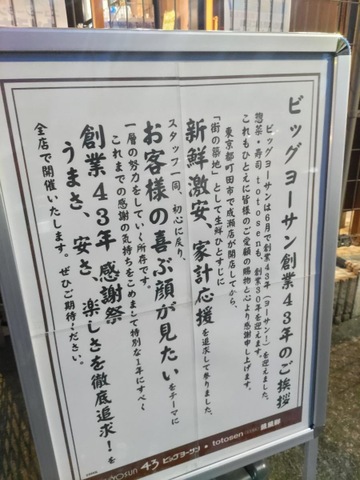 ビッグヨーサン創業43年のご挨拶
ビッグヨーサンは6月で創業43年（ヨーサン！）を迎えました。
惣菜・寿司 totosenも、創業30年を迎えます。
これもひとえに皆様のご愛顧の賜物と心より感謝申し上げます。
東京都町田市で成瀬店が開店してから、
「街の築地」として生鮮ひとすじに
新鮮激安、家計応援を追求して参りました。
スタッフ一同、初心に戻り、
お客様の喜ぶ顔が見たいをテーマに
一層の努力をしていく所存です。
これまでの感謝の気持ちをこめまして特別な1年にすべく
創業43年感謝祭
うまさ、安さ、楽しさを徹底追求！を
全店で開催いたします。ぜひご期待ください。
YOSUN 43 ビッグヨーサン ・ totosen